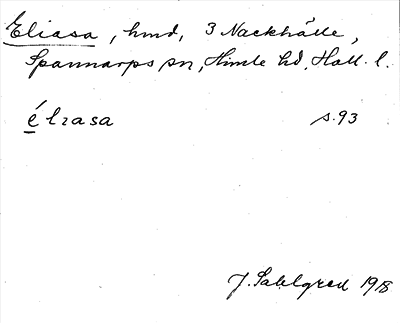 Eliasa, hmd, 3 Nackhälle,
Spannarps sn, Himle hd, Hall. l.
élıasa s. 93
J. Sahlgren 1918